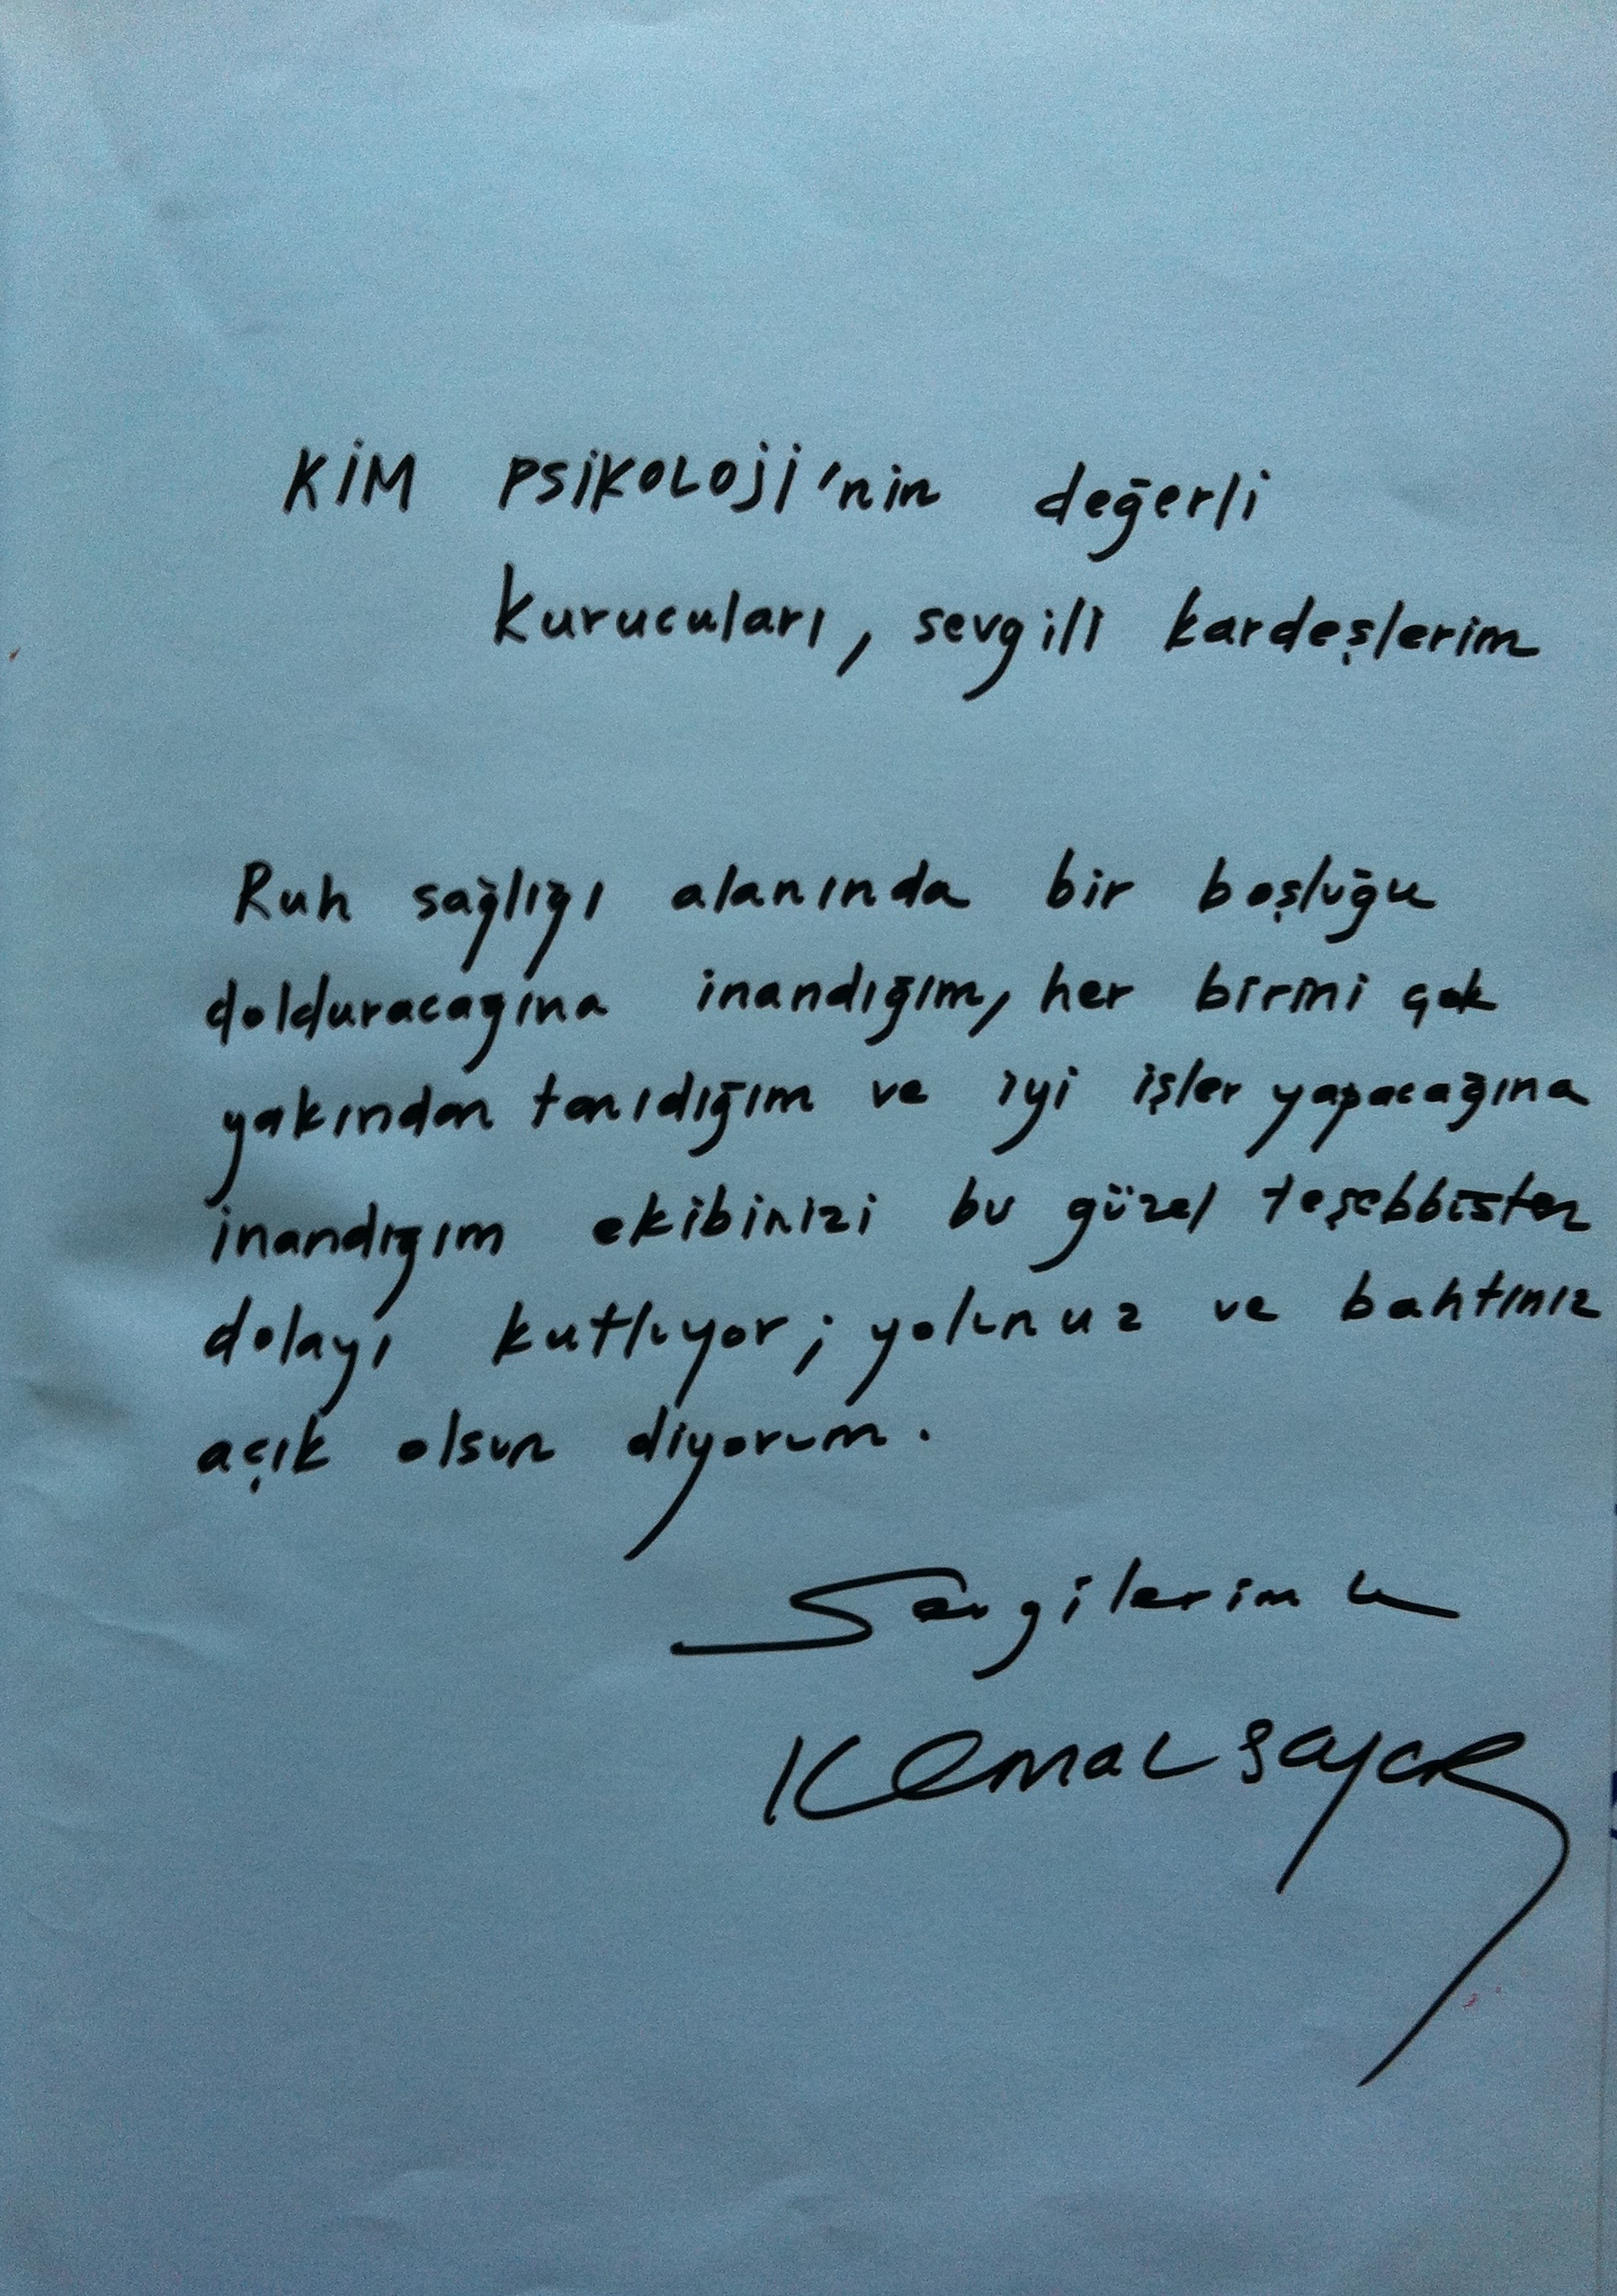 KİM PSİKOLOJİ'nin değerli
kurucuları, sevgili kardeşlerim
Ruh sağlığı alanında bir boşluğu
dolduracağına inandığım, her birini çok
yakından tanıdığım ve iyi işler yapacağına
inandığım ekibinizi bu güzel teşebbüsten
dolayı kutluyor; yolunuz ve bahtınız
açık olsun diyorum.
Sevgilerimle
Kemal SAYAR